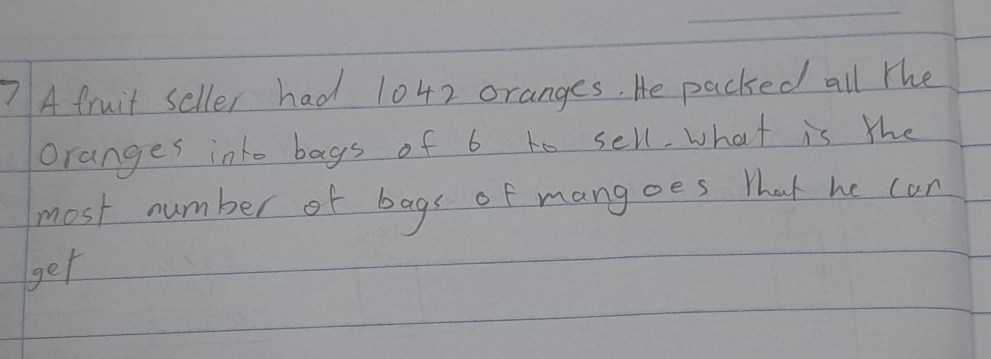 7 A fruit seller had 1042 oranges. He packed all the
oranges into bags of 6 to sell. what is the
most number of bags of mangoes that he can
get